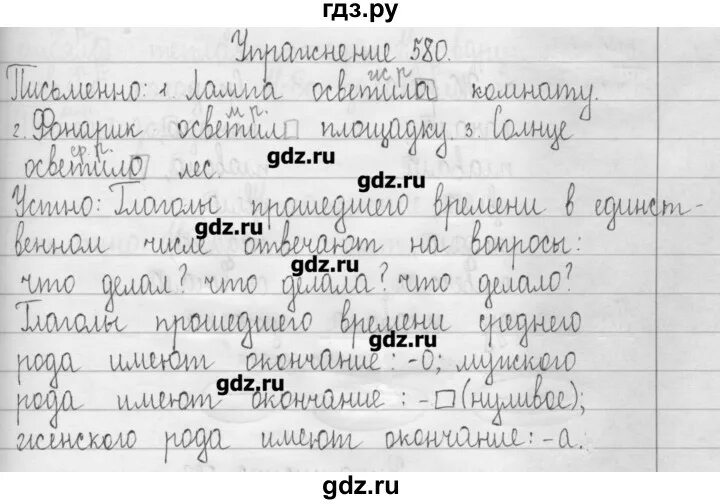 гдз.ру
Упражнение 580.
ж.р.
Письменно: 1. Лампа осветила комнату.
м.р.
2. Фонарик осветил□ площадку. 3. Солнце
ср.р.
осветило лес.
gdz.ru
gdz.ru
Устно: Глаголы прошедшего времени в единст-
gdz.ru
венном числе отвечают на вопросы:
gdz.ru
что делал? что делала? что делало?
Глаголы прошедшего времени среднего
gdz.ru
рода имеют окончание: -о; мужского
gdz.ru
рода имеют окончание: -□ (нуливое);
женского рода имеют окончание: -а.
gdz.ru